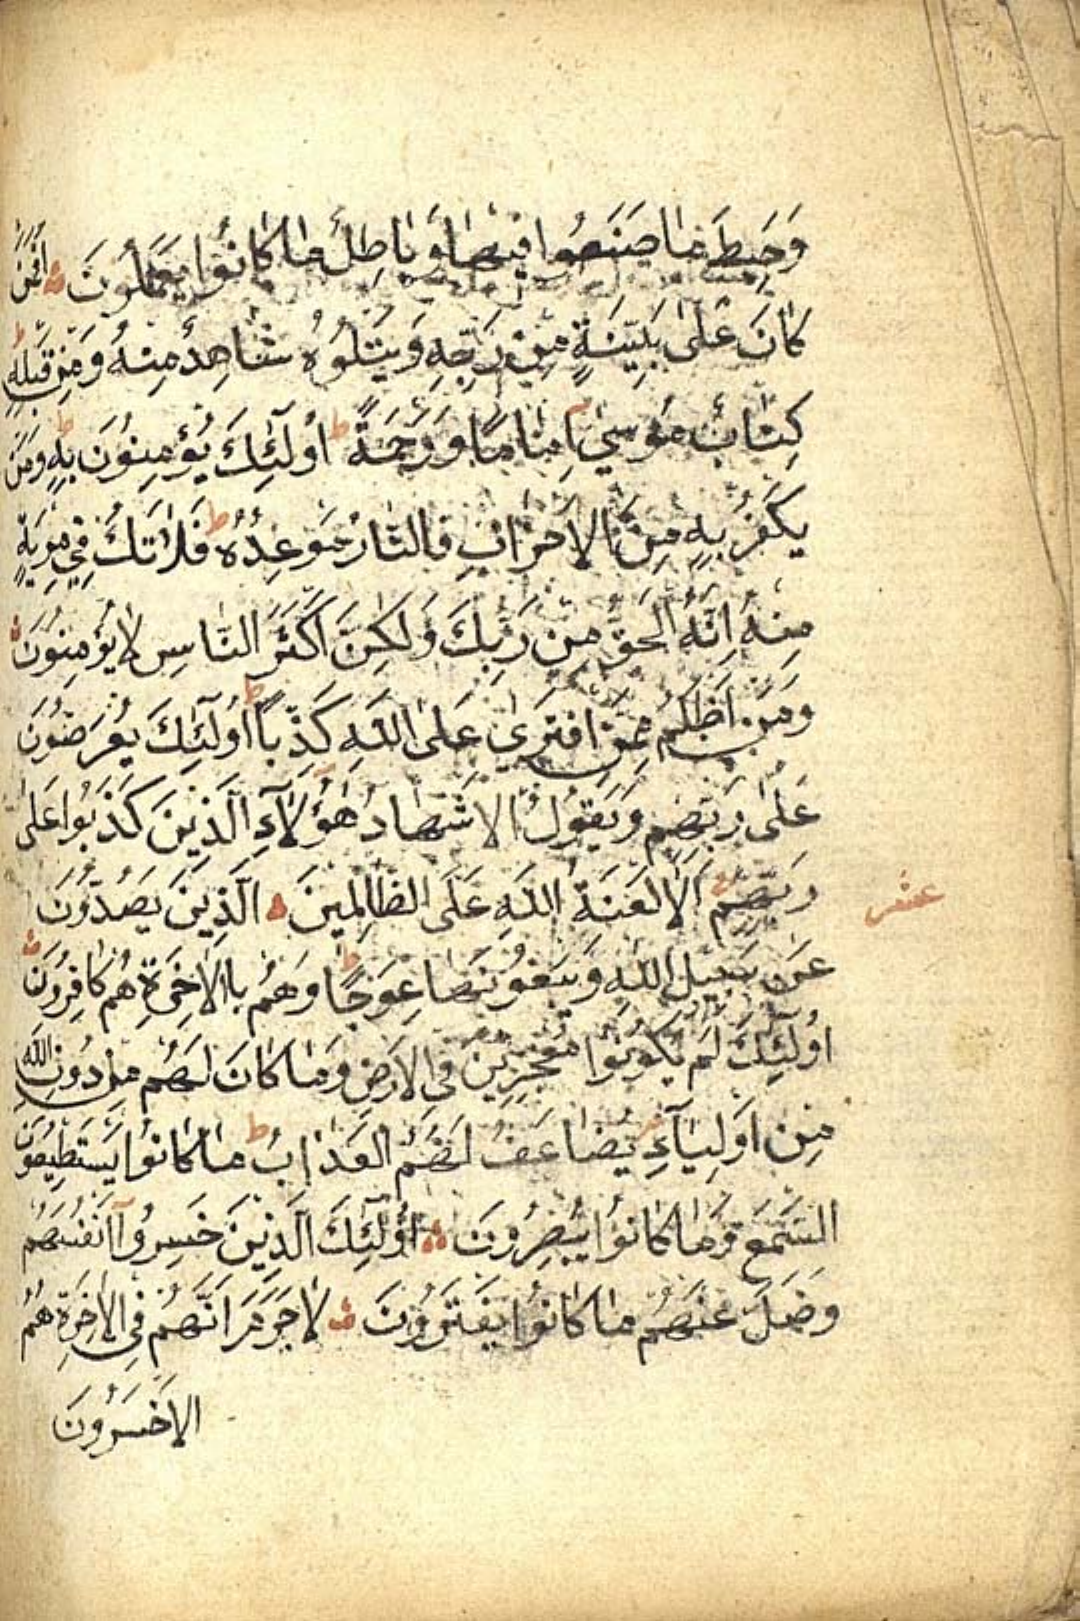 وَحَبِطَ مَا صَنَعُوا فِيهَا وَبَاطِلٌ مَا كَانُوا يَعْمَلُونَ اَفَمَنْ
كَانَ عَلٰى بَيِّنَةٍ مِنْ رَبِّهِ وَيَتْلُوهُ شَاهِدٌ مِنْهُ وَمِنْ قَبْلِهِ ط
كِتَابُ مُوسٰي اِمَامًا وَرَحْمَةً ط اُولٰٓئِكَ يُؤْمِنُونَ بِهِ ط وَمَنْ
يَكْفُرْ بِهِ مِنَ الْاَحْزَابِ فَالنَّارُ مَوْعِدُهُ ط فَلَا تَكُ فِي مِرْيَةٍ
مِنْهُ اِنَّهُ الْحَقُّ مِنْ رَبِّكَ وَلٰكِنَّ اَكْثَرَ النَّاسِ لَا يُؤْمِنُونَ
وَمَنْ اَظْلَمُ مِمَّنِ افْتَرٰي عَلَى اللّٰهِ كَذِبًا ط اُولٰٓئِكَ يُعْرَضُونَ
عَلٰى رَبِّهِمْ وَيَقُولُ الْاَشْهَادُ هٰؤُلَآءِ الَّذِينَ كَذَبُوا عَلٰى
رَبِّهِمْ اَلَا لَعْنَةُ اللّٰهِ عَلَى الظَّالِمِينَ الَّذِينَ يَصُدُّونَ
عشر
عَنْ سَبِيلِ اللّٰهِ وَيَبْغُونَهَا عِوَجًا ط وَهُمْ بِاالْاٰخِرَةِ هُمْ كَافِرُونَ
اُولٰٓئِكَ لَمْ يَكُونُوا مُعْجِزِينَ فِى الْاَرْضِ وَمَا كَانَ لَهُمْ مِنْ دُونِ اللّٰهِ
مِنْ اَوْلِيَآءِ يُضَاعَفُ لَهُمُ الْعَذَابُ ط مَا كَانُوا يَسْتَطِيعُونَ
السَّمْعَ وَمَا كَانُوا يُبْصِرُونَ اُولٰٓئِكَ الَّذِينَ خَسِرُوا اَنْفُسَهُمْ
وَضَلَّ عَنْهُمْ مَا كَانُوا يَفْتَرُونَ لَا جَرَمَ اَنَّهُمْ فِى الْاٰخِرَةِ هُمُ
الْاَخْسَرُونَ